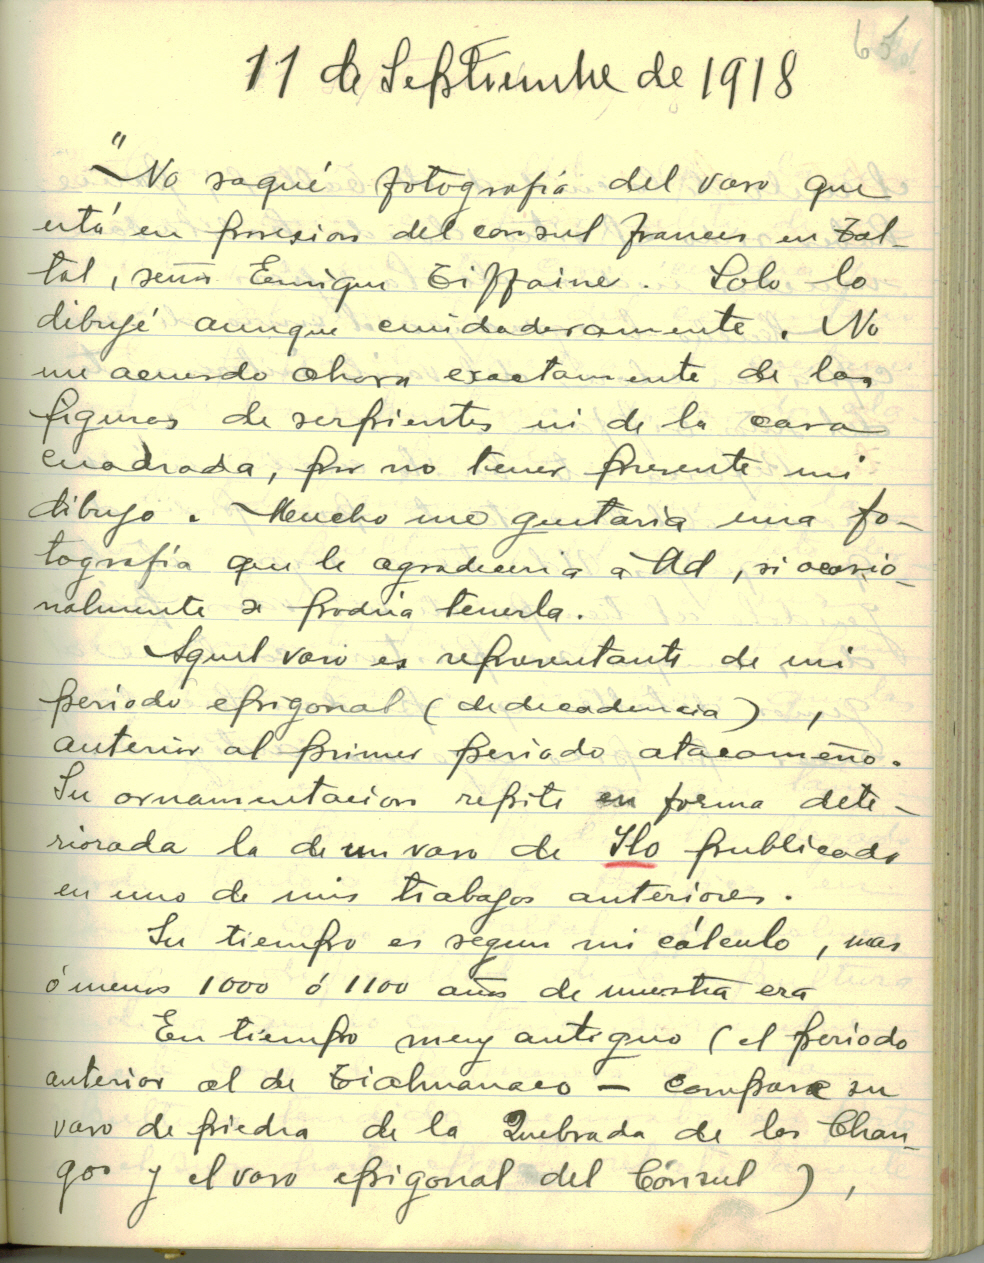 65
11 de Septiembre de 1918
"No saqué fotografía del vaso que
está en posesion del consul frances en Tal-
tal, señor Enrique Tiffaine. Solo lo
dibujé aunque cuidadosamente. No
me acuerdo ahora exactamente de las
figuras de serpientes ni de la cara
cuadrada, por no tener presente mi
dibujo. Mucho me gustaria una fo-
tografía que le agradeceria a Ud, si ocasio-
nalmente se podria tenerla.
Aquel vaso es representante de mi
periodo epigonal (de decadencia),
anterior al primer periodo atacameño.
Su ornamentacion repite en forma dete-
riorada la de un vaso de Ilo publicado
en uno de mis trabajos anteriores.
Su tiempo es segun mi cálculo, mas
ó menos 1000 ó 1100 años de nuestra era
En tiempo muy antiguo (el periodo
anterior al de Tiahuanaco — compare su
vaso de piedra de la Quebrada de los Chan-
gos y el vaso epigonal del Cónsul),